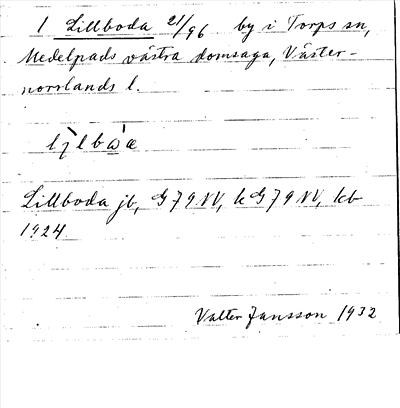 1 Lillboda 21/96 by i Torps sn,
Medelpads västra domsaga, Väster-
norrlands l.
Lillboda jb, G 79 NV, k G 79 NV, kb
1924
Valter Jansson 1932